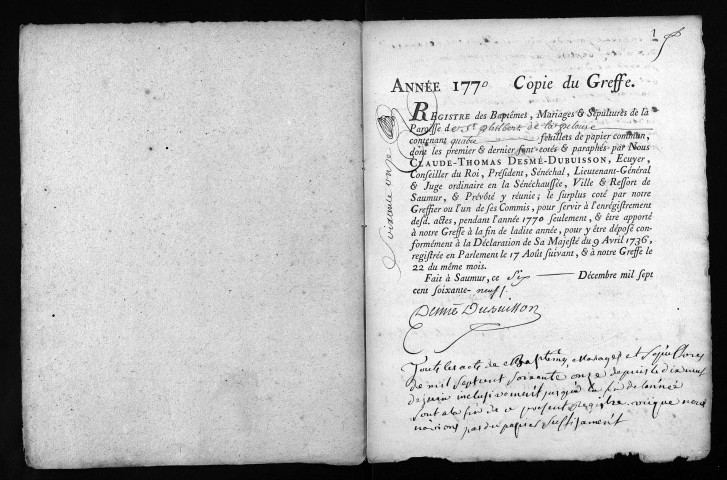 1
ANNÉE 1770 Copie du Greffe.
REGISTRE des Baptêmes, Mariages & Sépultures de la
Paroisse de St philbert de la pelouse
contenant quatre feuillets de papier commun,
dont les premier & dernier sont cotés & paraphés par Nous
CLAUDE-THOMAS DESMÉ-DUBUISSON, Ecuyer,
Conseiller du Roi, Président, Sénéchal, Lieutenant-Général
& Juge ordinaire en la Sénéchaussée, Ville & Ressort de
Saumur, & Prévôté y réunie; le surplus coté par notre
Greffier ou l'un de ses Commis, pour servir à l'enrégistrement
desd. actes, pendant l'année 1770 seulement, & être apporté
à notre Greffe à la fin de ladite année, pour y être déposé con-
formément à la Déclaration de Sa Majesté du 9 Avril 1736,
registrée en Parlement le 17 Août suivant, & à notre Greffe le
22 du même mois.
Fait à Saumur, ce six Décembre mil sept
cent soixante-neuf.
Desmé Dubuisson
Soixante onze
Tout les acte de Baptême, Mariages et Sepultures
de mil sept cent soixante onze depuis le dix neuf
de juin inclusivement jusqu'a la fin de l'année
sont a la fin de ce present Registre vu que nous
n'avions pas du papier suffisament